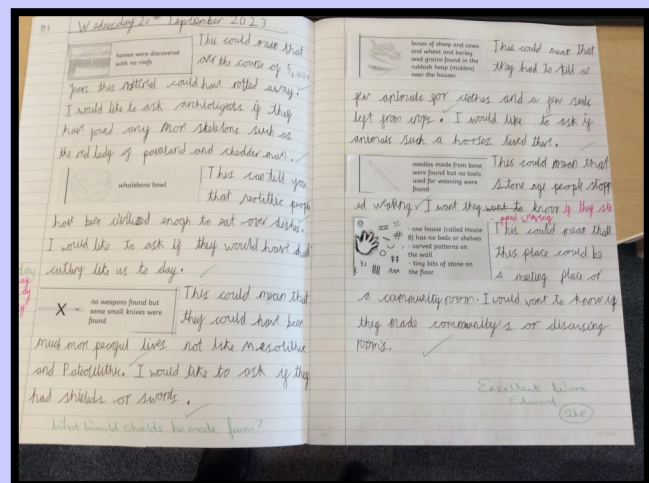 Wednesday 20th September 2023
homes were discovered
with no roofs
This could mean that
over the course of 5,000
years this matireal could have rotted away.
I would like to ask archioligists if they
have found any more skeletons such as
the red lady of pavaland and chedder man.
whalebone bowl
This can tell you
that neolithic people
have been civilized enogh to eat over dishes.
I would like to ask if they would have had
cutlery like us to day.
no weapons found but
some small knives were
found
This could mean that
they could have been
much more peaceful lives not like Mesolithic
and Paleolilithic. I would like to ask if they
had shields or swords.
What would shields be made from?
bones of sheep and cows
and wheat and barley
seed grains found in the
rubbish heap (midden)
near the houses
This could mean that
they had to kill a
few animals for clothes and a few seeds
left from crops. I would like to ask if
animals such a horses lived there.
needles made from bone
were found but no tools
used for weaving were
found
This could mean that
Stone age people stopp
ed weaving. I want they want to know if they sto
pped weaving
- one house (called House
8) has no beds or shelves
- carved patterns on
the wall
- tiny bits of stone on
the floor
This could mean that
this place could be
a meeting place or
a community room. I would want to know if
they made community's or discussing
room's.
Excellent Work
Edward
2he